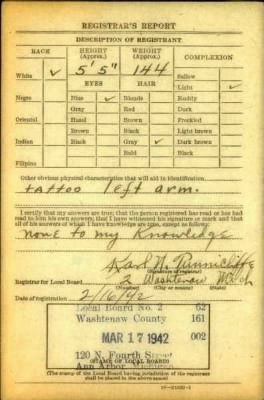 REGISTRAR'S REPORT
DESCRIPTION OF REGISTRANT
RACE HEIGHT (Approx.) WEIGHT (Approx.) COMPLEXION
White ✓ 5' 5" 144 Sallow
EYES HAIR Light ✓
Negro Blue ✓ Blonde Ruddy
Gray Red Dark
Oriental Hazel Brown Freckled
Brown Black Light brown
Indian Black Gray ✓ Dark brown
Bald Black
Filipino
Other obvious physical characteristics that will aid in identification
tattoo left arm.
I certify that my answers are true; that the person registered has read or has had
read to him his own answers; that I have witnessed his signature or mark and that
all of his answers of which I have knowledge are true, except as follows:
none to my Knowledge
Karl
(Signature of registrar)
Registrar for Local Board 2 Washtenaw Mich
(Number) (City or county) (State)
Date of registration 2/16/42
Local Board No. 2 62
Washtenaw County 161
MAR 17 1942 002
120 N. Fourth Street
Ann Arbor, Michigan
(STAMP OF LOCAL BOARD)
(The stamp of the Local Board having jurisdiction of the registrant
shall be placed in the above space.)